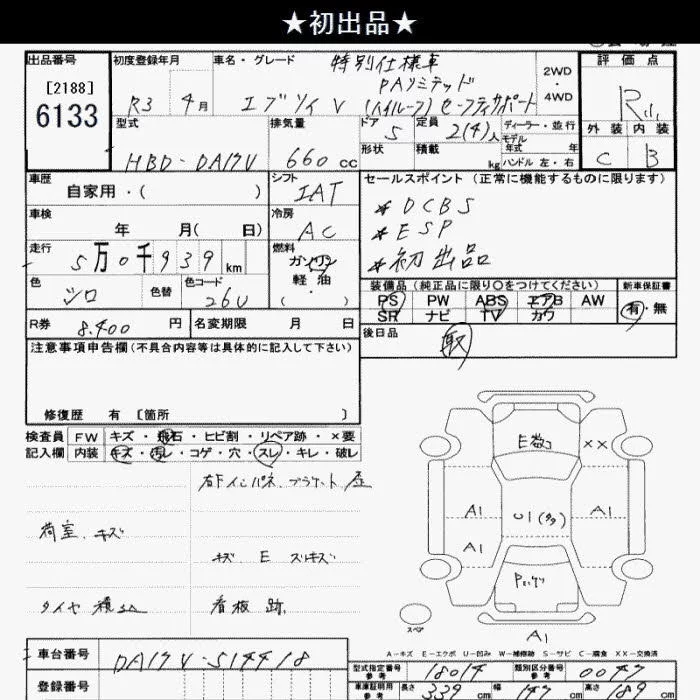 ★初出品★
出品番号 初度登録年月 車名・グレード 特別仕様車 評価点
[2188] PAリミテッド 2WD
6133 R3 4月 エブリイV (ハイルーフ) セーフティサポート ・4WD R
型式 排気量 ドア 定員 ディーラー・並行 外装 内装
5 2(4)人 モデル年式 年
HBD-DA17V 660cc 形状 積載 kg ハンドル 左・右 C B
車歴 シフト セールスポイント (正常に機能するものに限ります)
自家用・( ) IAT * DCBS
車検 冷房 * ESP
年 月( 日) AC * 初出品
走行 燃料
5万0千939km ガソリン
色 色替 色コード 軽油 装備品 (純正品に限り○をつけてください) 新車保証書
シロ 26U ( ・ ) PS PW ABS エアB AW 有・無
SR ナビ TV カワ
R券 8.400円 名変期限 月 日 後日品 取
注意事項申告欄 (不具合内容等は具体的に記入して下さい)
修復歴 有 [箇所 ]
検査員 FW キズ・飛石・ヒビ割・リペア跡・×要
記入欄 内装 キズ・汚レ・コゲ・穴・スレ・キレ・破レ
右下インパネ、ブラケット 歪
荷室、キズ
キズ E スリキズ
タイヤ 積込
看板跡
E数コ ××
A1 U1(多) A1
A1
スペア
A1
A-キズ E-エクボ U-凹み W-補修跡 S-サビ C-腐食 XX-交換済
車台番号 DA17V-514418
型式指定番号 参考 18014 類別区分番号 参考 0047
登録番号
車庫証明用 参考 長さ 339cm 幅 147cm 高さ 189cm